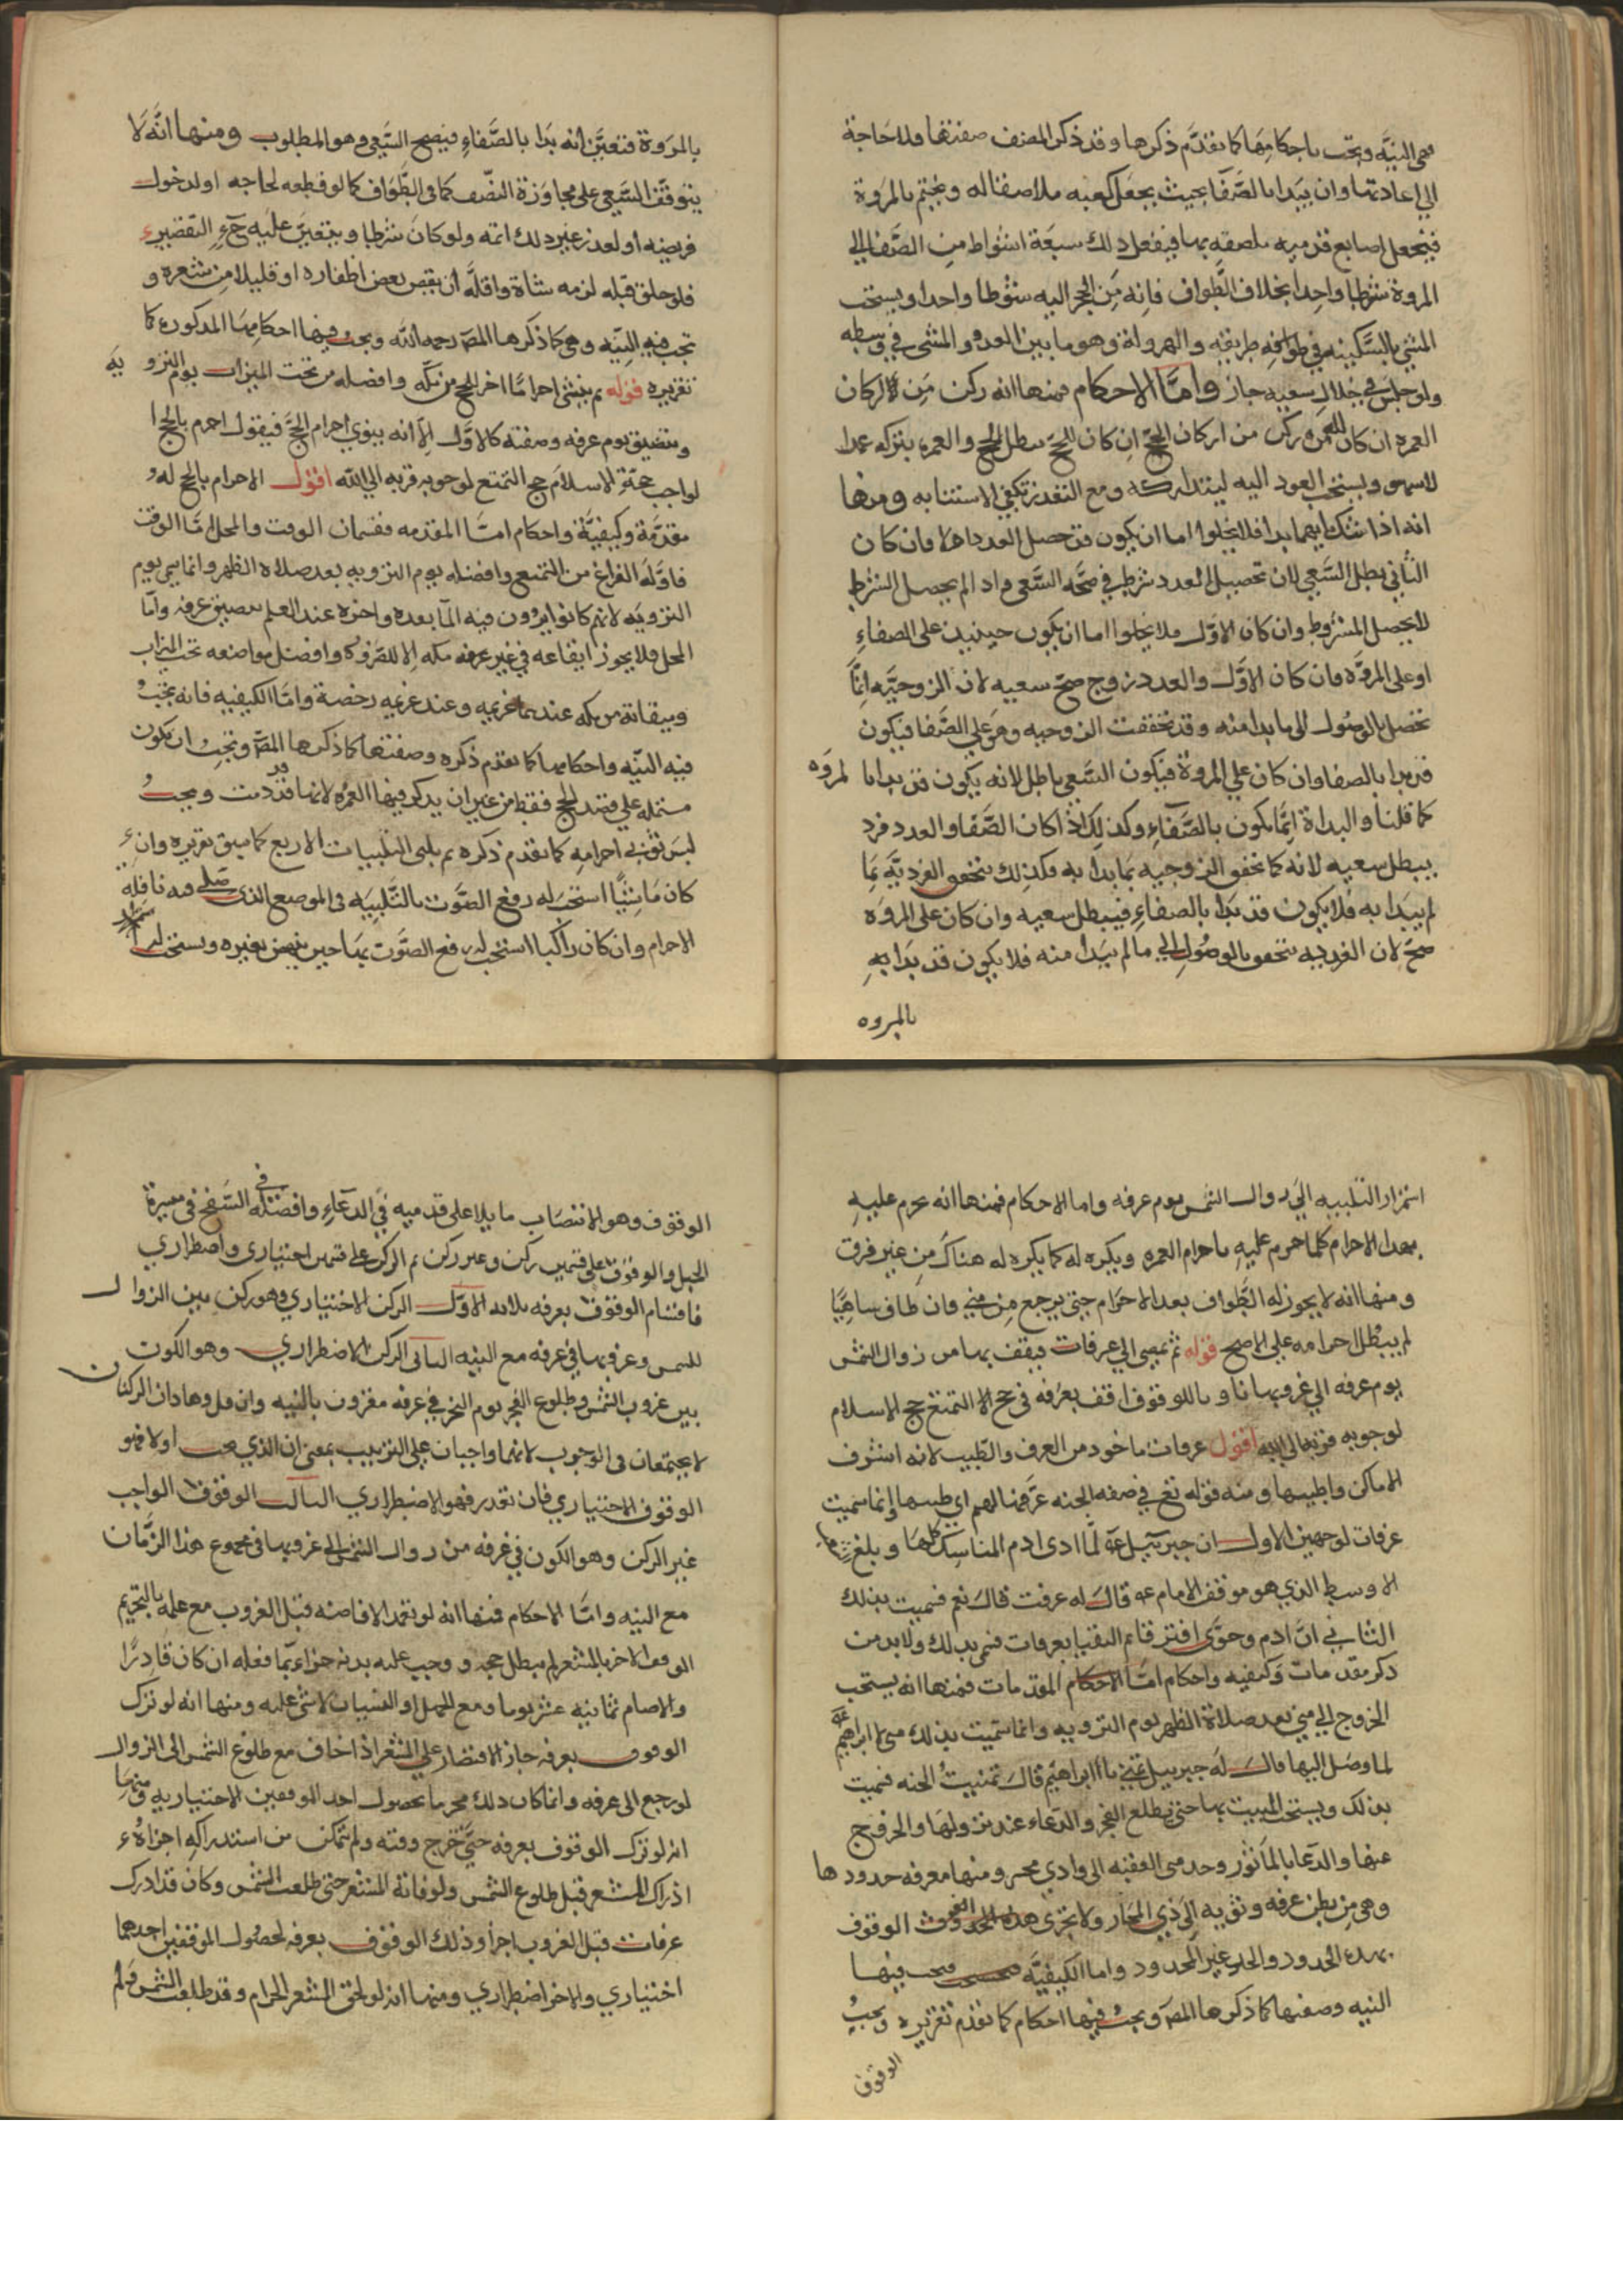 فهى النيَّه ويجب باحكامها كما تقدَّم ذكرها وقد ذكر المصنف صفتها فلا حَاجة
الي اعادتها وان يبَدا بالصَّفا بحيث يجعَل كعبه ملاصقا له ويختم بالمرَوة
فيجعل اصابع قدميه ملصقه بها فيفعل ذلك سبعَة اشواط من الصَّفا الى
المروة شوطا واحِدا بخلاف الطَّواف فانه مِن الحجر اليه شوطا واحدا ويستحب
المشي بالسَّكينه في طوافه طريقيه والهرولة وهو ما بين العدو والمشى في وسطه
ولو جلس في خلال سعيه جاز وامَّا الاحكام فمنها انه ركن مِن الاركان
العمره ان كان للعمره ركن من اركان الحجّ ان كان للحجّ يبطل الحج والعمره بتركه عمدا
لاسهوا ويستحب العود اليه ليتداركه ومع التعذر تكفى الاستنابه ومنها
انه اذا شك ايهما بدا فلا يخلوا اما ان يكون قد حصل العدد اولا فان كان
الثَّاني بطل السَّعي لان تحصيل العدد شرط في صحَّه السَّعى واذا لم يحصل الشرط
لا يحصل المشروط وان كان الاوَّل فلا يخلوا اما ان يكون حينيذ على الصفاءِ
او على المروَّه فان كان الاوَّل والعدد زوج صحّ سعيه لان الزوجيَّه انَّما
تحصل بالوصُول الى ما بدا منه وقد تحققت الزوجيه وهو على الصَّفا فيكون
قد بدا بالصفا وان كان علي المروة فيكون السَّعى باطل لانه يكون قد بدا با لمرَوه
كما قلنا والبداة انَّما تكون بالصَّفاءِ وكذلك اذا كان الصَّفا والعدد فرد
يبطل سعيه لانه كما تحقق الزوجيه بما بدا به فكذلك تتحقق الفرديَّه بَما
لم يبدَا به فلا يكون قد بدَا بالصفاءِ فيبطل سعيه وان كان على المروَه
صحَّ لان الفرديه تتحقق بالوصُول الي ما لم يبَدا منه فلا يكون قد بدَا بهِ
بالمروه
بالمرَوة فتعيَّن انه بدَا بالصَّفاءِ فيصح السَّعى وهو المطلوب ومنها انَّه لَا
يتوقَّف السَّعى على مجاوَزة النصّف كما في الطَّوَاف كما لو قطعه لحاجه او لدخول
فريضه او لعذر غير ذلك اتمه ولو كانَ شوطا ويتعيَّن عليَه حٓءِ التقصير
فلو حلق قبله لزمه شاة واقلَّه ان يقص بعض اظفاره او قليلا من شعره و
تجب فيه النيَّه وهى كما ذكرها المصَ رحمه الله ويجب فيها احكامهَا المذكوره كما
تقريره قوله ثم ينشى احرامًا اخر للحج من مكّه وافضله من تحت الميزاب يوم الترو يه
ويتضيق يوم عرفه وصفته كالاوَّل الّا انه ينوي احرام الحجَّ فيقول احرم بالحج ا
لواجب حجّةِ الاسلامَ حج التمتع لوجوبه قربه الي الله اقول الاحرام بالحج له
مقدَّمة وكيفيَّة واحكام امَّا المقدمه فقسمان الوقت والمحل امَّا الوقت
فاوَّله الفراغ من التمتع وافضله يوم الترويه بعد صلاه الظهر وانما سمى يوم
الترويَه لانهم كانوا يروون فيه المآ بعده واخره عند العلم بتضيق عرفه وامَّا
المحل فلا يجوز ايقاعه في غير عرفه مكه الا للضَّروره كا وافضل مواضعه تحت الميزاب
وميقاتة من مكه عندهما غريميه وعند غريمه رخصة وامَّا الكيفيه فانه يجَبُ
فيه النيَّه واحكامها كما تقدَم ذكره وصفتها كما ذكرها المصَّ ويجبُ ان يكون
مشتمله علي قصد الحج فقط من غير ان يذكر فيها العمرُه لانها قد مت ويجبُ
لبسَ ثوبي احرامِه كما تقدم ذكره ثم يلبى التلبيات الاربع كما سبق تقريره وان
كان مَاشِيًا استحبَ له رفع الصَّوَت بالتَّلبيَه فى الموضع الذى صَلى فيه نافِلة
الاحرام وان كان راكبا استحب له رفع الصَّوَت بهَا حين ينهض بعيره ويستحب له
استمرار التلبيه الَي زوال الشمس يوم عرفه واما الاحكام فمنها انه يحرم عليهِ
بعد الاحرام كلما حرم عليهِ باحرام العمره ويكره له كما يكره له هناكَ من غير فرق
ومنها انه لا يجوز له الطَّواف بعد الاحَرام حتى يرجع مِن منى فان طاف ساهيَّا
لم يبطل احرامه علي الاصح قوله ثم يمضى الي عرفات فيقف بها من زوال الشمس
يوم عرفه الي غروبها ناويا للوقوف اقف بعرفه فى حج الا التمتع حج الاسلام
لوجوبه قربة الي الله اقول عرفات ماخوذ من العرف والطّيب لانه اشرف
الاماكن واطيبها ومنه قوله تعَ في صفه الجنه عرَّفها لهم اي طيبها وانما سميت
عرفات لوجهين الاول ان جبرئيل عَه لمَّا ادى ادم المناسِك كلهَا وبلغ
الاوسط الذي هو موقف الامام عه قالَ له عرفت قالَ نعم فسميت بذلك
الثاني انَّ ادم وحوَّى افترقا ثم التقيا بعرفات فسمى بذلك ولابد من
ذكر مقدمات وَكيفيه واحكام امَّا الاحكام المقدمات فمنها انه يستحب
الخروج الي منى بعد صلاة الظهر يوم الترويه وانما سَميت بذلك منى لا ابراهيَم عَه
لما وصَل اليها قالَ لهَ جبرييل تمنى يا ابراهيَم قالَ تمنيتُ الجنه فسميت
بذلك ويستحب المبيت بها حتى يطلع الفجر والدّعاء عند نزولهَا والخروج
عنها والدَّعا بالمَاثور وحد منى العقبه الى وادى محسر ومنها معرفه حدودها
وهى مِن بطن عرفه وثويه الَي ذي المجَاز ولا يجزى هذه الحدود الوقوف
بهذه الحدود والحد غير المحدود واما الكيفيَّه فيجب فيها
النيه وصفتها كما ذكرها المصَ ويجبُ فيها احكام كما تقدَم تقريره ويجبُ
الوقوف
الوقوف وهو الانتصَاب مايلا على قدميه في الدَعَاءِ وافضله في السَّفح فى ميسرة
الجبل والوقوف على قسمين ركن وغير ركن ثم الركن على قسمين اختيارى واضطراري
فاقسام الوقوف بعرفه ثلاثه الاوَّل الركن الاختياري وهو ركن بين الزوال
للشمس وغروبها في عرفه مع النيه الثانى الركن الاضطراري وهو الكون
بين غروب الشمس وطلوع الفجر يوم النحر في عرفه مقرون بالنيه وان قل وهاذان الركنان
لا يجتمعان فى الوجوب لانهما واجبان على الترتيب بمعنى ان الذي يجب اولا فهو
الوقوف الاختياري فان تعذر فهو الاضطراري الثالث الوقوف الواجب
غير الركن وهو الكون في عرفه من زوال الشمس الى غروبها فى مجموع هذا الزَّمان
مع النيه وامَّا الاحكام فمنها انه لو تعمَد الافاضه قبل الغروب مع علمه بالتحريم
الوقف الاخر بالمشعر لم يبطل حجه ووجب عليه بدنه جزاء بّما فعله ان كان قادرًا
والا صام ثمانيه عشر يوما ومع الجهل او النسيان لا شى عليه ومنها انه لو ترك
الوقوف بعرفه جاز الاقتصار على المشعر اذا خاف مع طلوع الشمس الى الزوال
لو رجع الى عرفه وانما كان ذلك مجزيا بحصول احد الموقفين الاختياريه ومنها
انه لو ترك الوقوف بعرفه حتَّى خرج وقته ولم يتمكن من استدراكه اجزاهُ
ادراك المشعر قبل طلوع الشمس ولو فاتة المشعر حتى طلعت الشمس وكان قد ادرك
عرفات قبل الغروب اجزا وذلك الوقوف بعرفه لحصُول الموقفين احدهما
اختياري والاخر اضطراري ومنها انه لو لحق المشعر الحرام وقد طلعت الشمس ولم